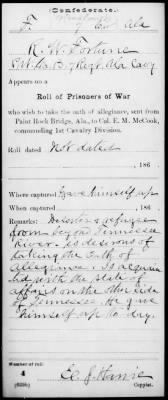 (Confederate.)
F. 7 Cav Ala
R. W. Fortune
Pvt. Co. B, 7 Regt Ala Cavy
Appears on a
Roll of Prisoners of War
who wish to take the oath of allegiance, sent from
Paint Rock Bridge, Ala., to Col. E. M. McCook,
commanding 1st Cavalry Division.
Roll dated Not dated
, 186
Where captured Gave himself up
When captured , 186 .
Remarks: Deserter & refugee
from beyond Tennessee
River. Is desirous of
taking the Oath of
Allegiance. Is acquain
ted with the state of
affairs on the other side
of Tennessee. He gave
himself up to-day.
Number of roll:
4
(639b) Copyist.